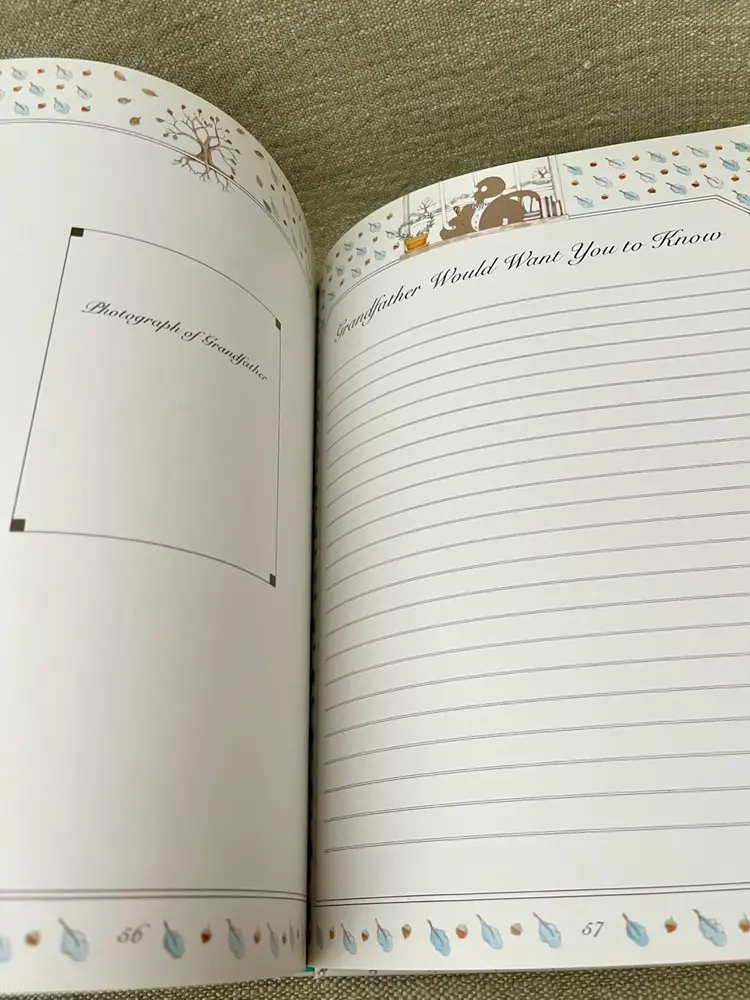 Photograph of Grandfather
56
Grandfather Would Want You to Know
57